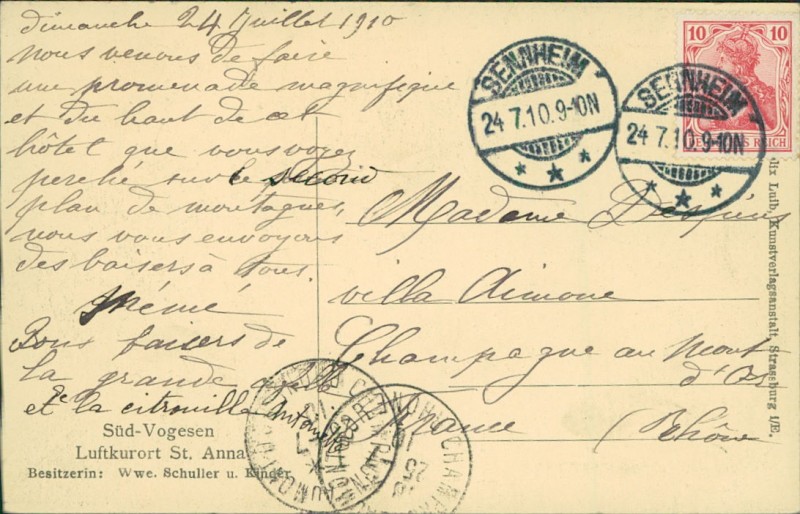 dimanche 24 Juillet 1910
nous venons de faire
une promenade magnifique
et du haut de cet
hôtel que vous voyez
perché sur le second
plan de montagnes,
nous vous envoyons
des baisers à tous.
Mémé
Bons baisers de
la grande
et la citrouille
Süd-Vogesen
Luftkurort St. Anna
Besitzerin: Wwe. Schuller u. Kinder
10 10
DEUTSCHES REICH
SENNHEIM
24 7.10.9-10N
SENNHEIM
24 7.10.9-10N
Madame
villa Aimone
Champagne au Mont
d'Or
France (Rhône)
Felix Luib, Kunstverlagsanstalt, Strassburg i/E.